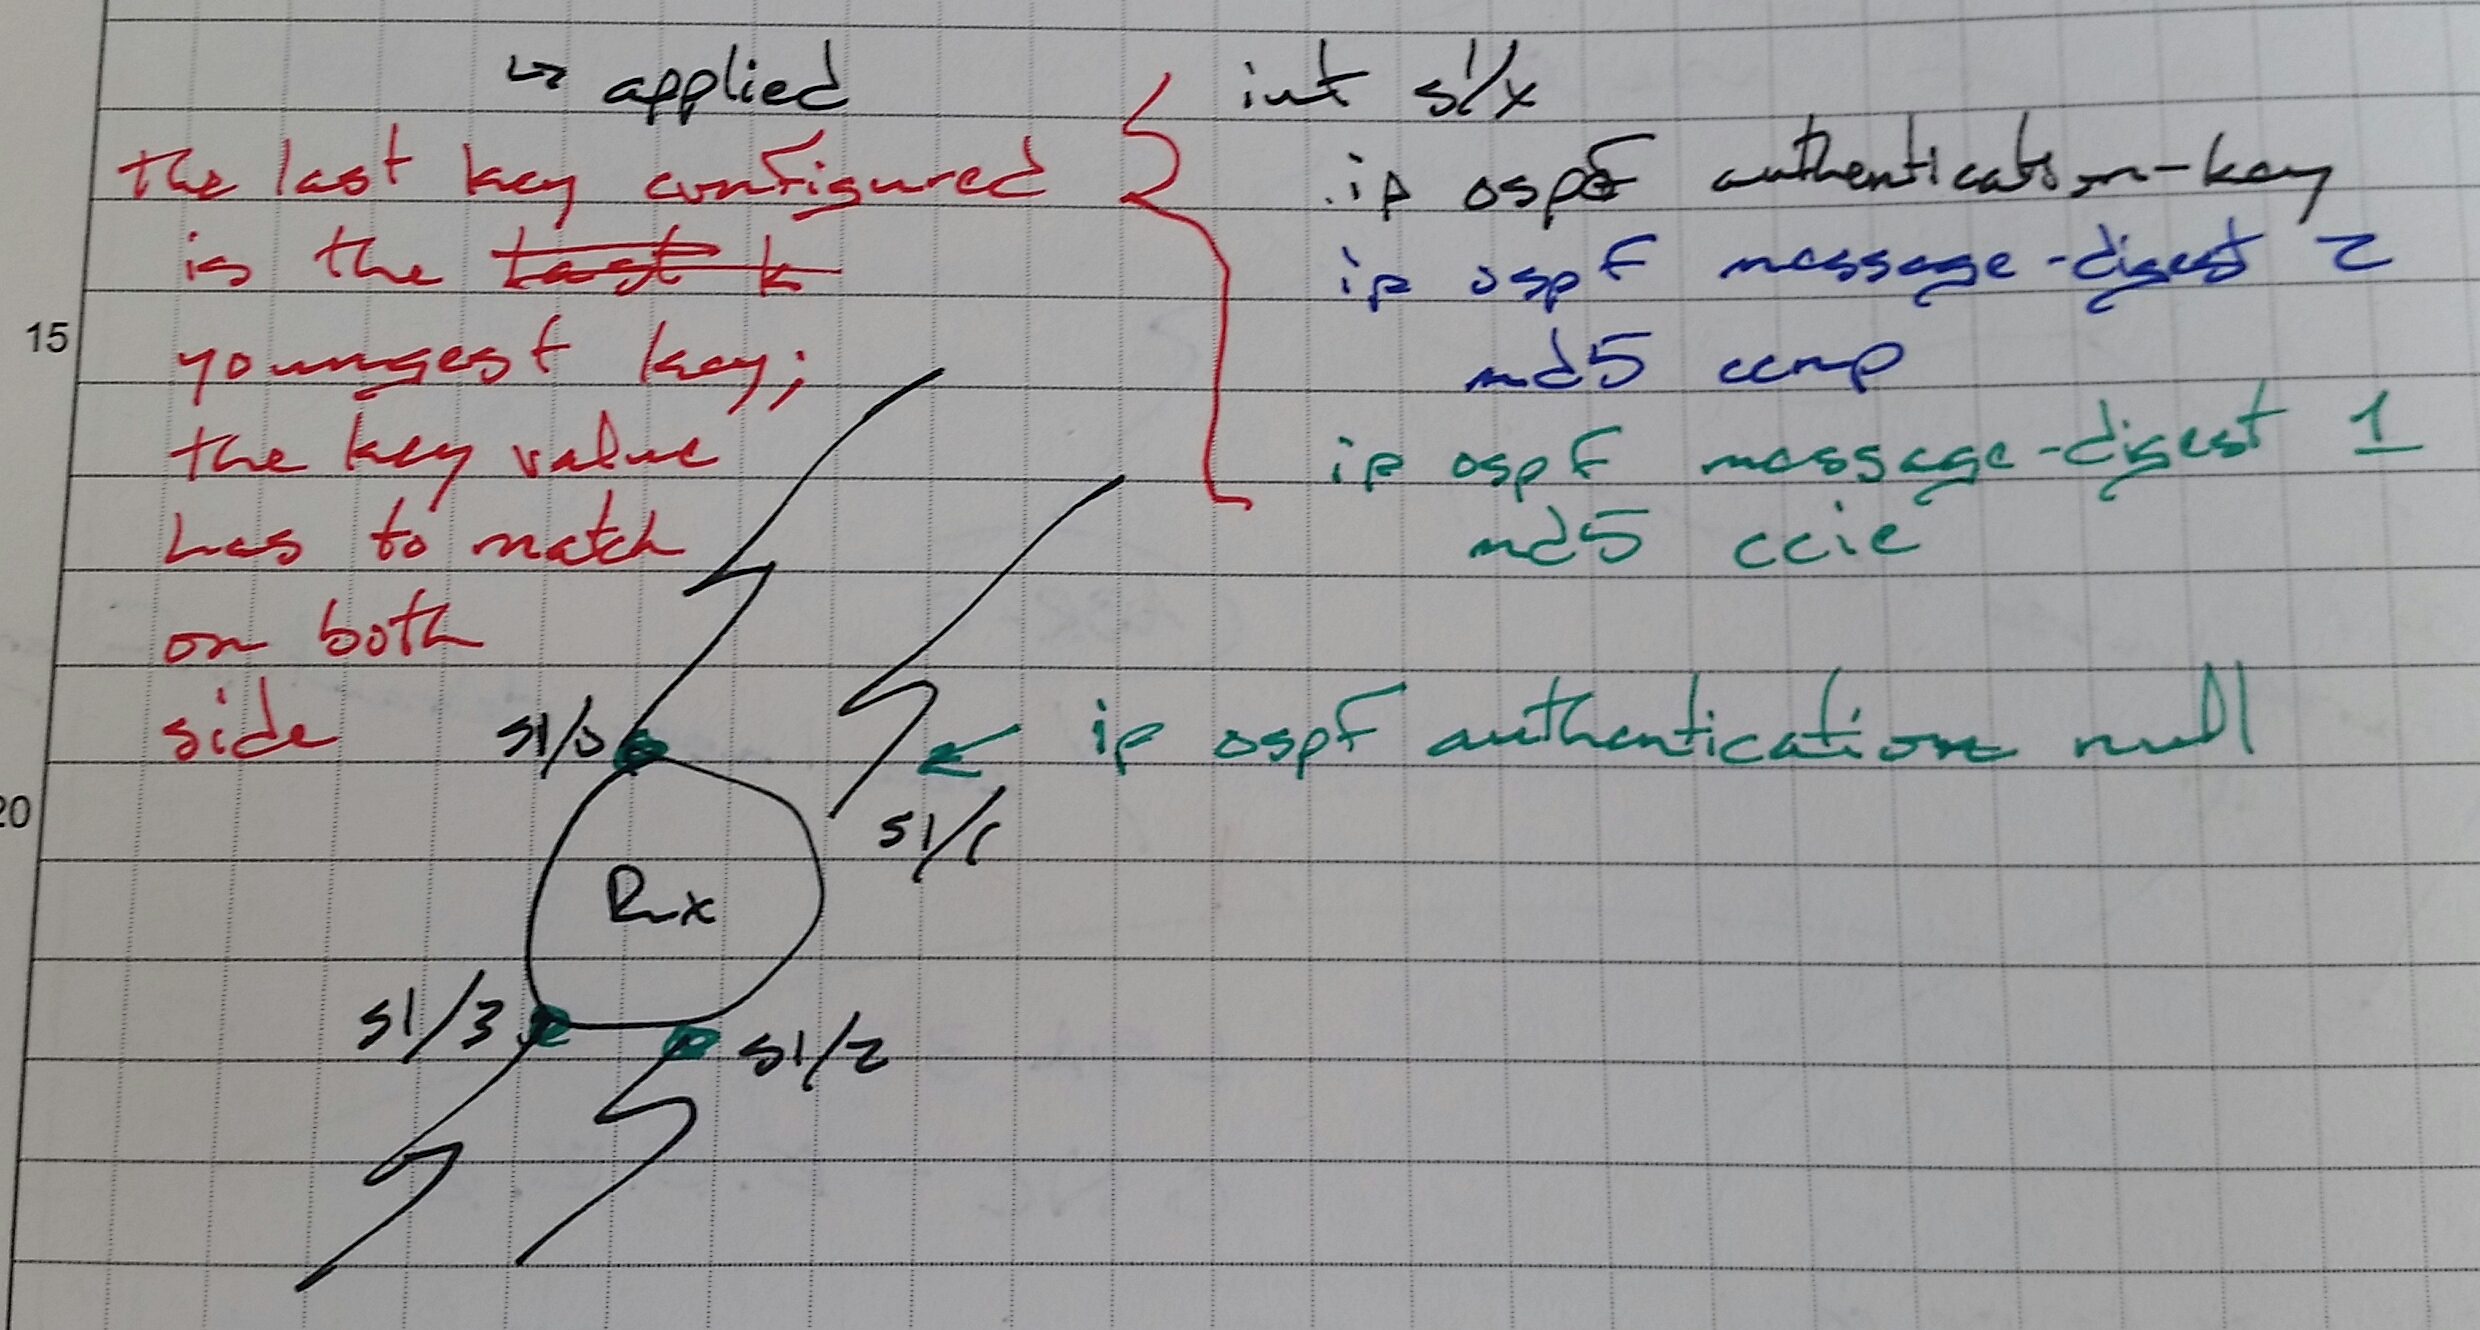 ↳ applied
the last key configured
is the last k
youngest key;
the key value
has to match
on both
side
int s1/x
ip ospf authentication-key
ip ospf message-digest 2
md5 ccnp
ip ospf message-digest 1
md5 ccie
15
s1/0
← ip ospf authentication null
20
s1/1
Rx
s1/3
s1/2